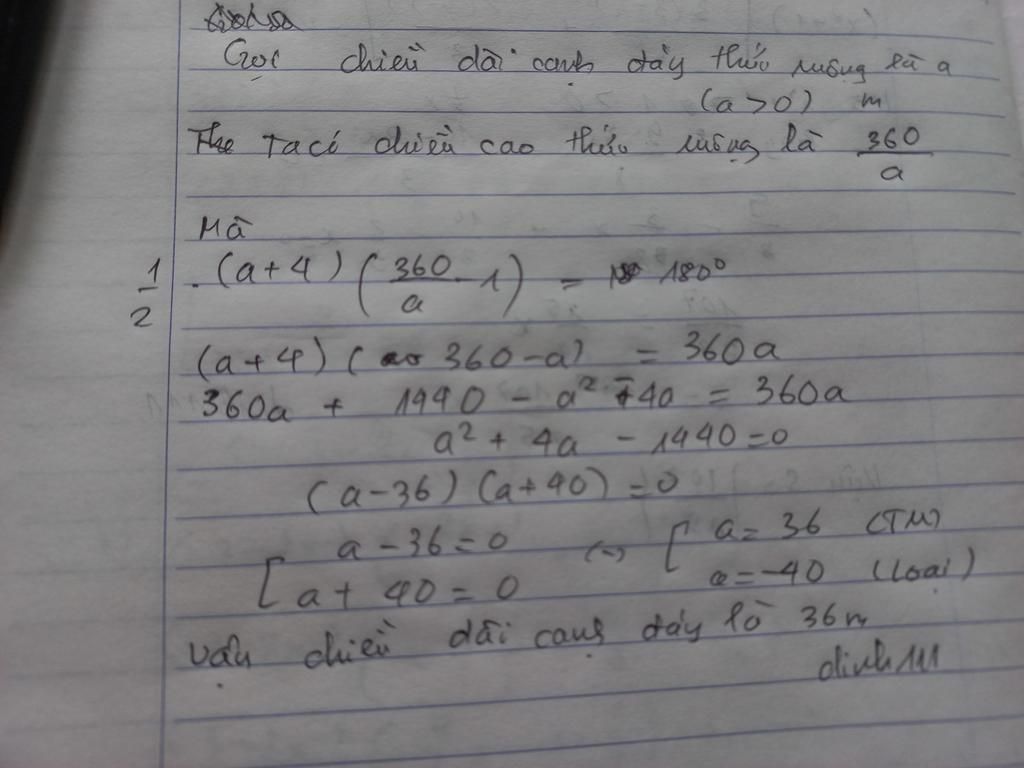 Gọi chiều dài cạnh đáy thửa ruộng là a
(a > 0) m
Ta có chiều cao thửa ruộng là 360/a
Mà
1/2 . (a + 4) (360/a - 1) = 180⁰
(a + 4) (360 - a) = 360a
360a + 1440 - a² - 4a = 360a
a² + 4a - 1440 = 0
(a - 36) (a + 40) = 0
[ a - 36 = 0 (-) [ a = 36 (TM)
[ a + 40 = 0 a = -40 (loại)
Vậy chiều dài cạnh đáy là 36m